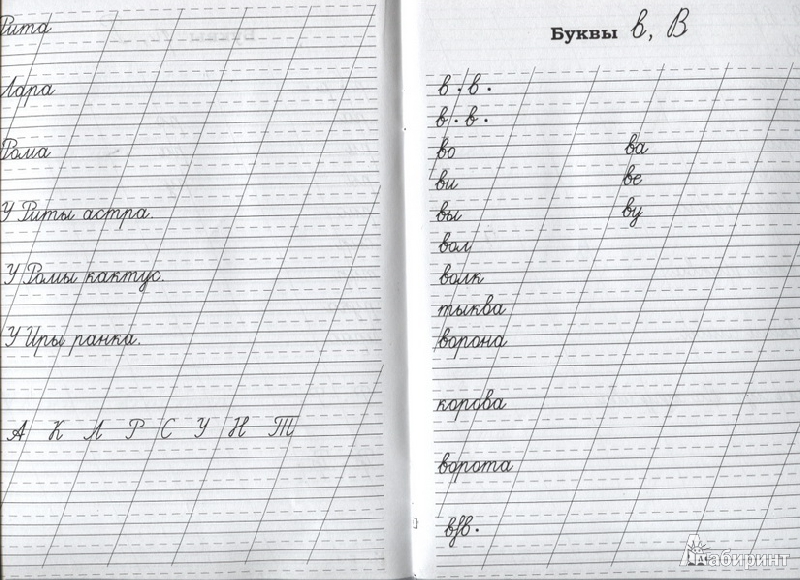 Рита
Лара
Рома
У Риты астра.
У Ромы кактус.
У Иры ранка.
А К Л Р С У Н Т
Буквы в, В
в · в ·
в · в ·
во ва
ви ве
вы ву
вол
волк
тыква
ворона
корова
ворота
Лабиринт